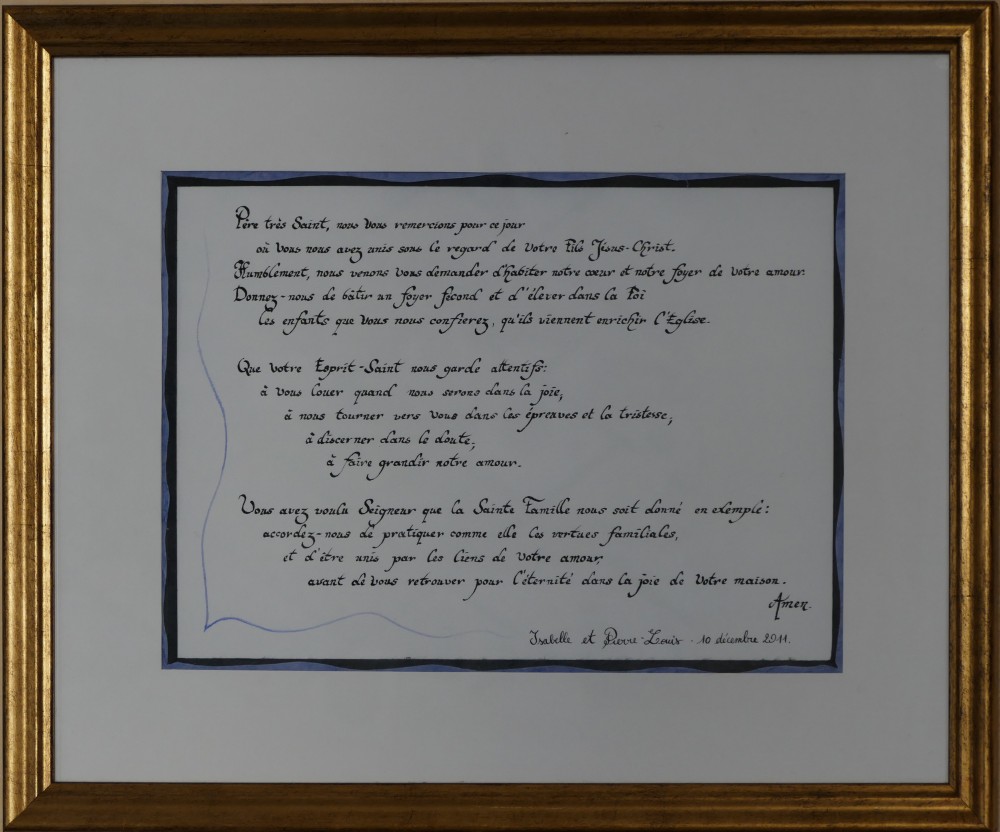 Père très Saint, nous Vous remercions pour ce jour
où Vous nous avez unis sous le regard de Votre Fils Jésus-Christ.
Humblement, nous venons Vous demander d'habiter notre cœur et notre foyer de Votre amour.
Donnez-nous de bâtir un foyer fécond et d'élever dans la Foi
les enfants que Vous nous confierez, qu'ils viennent enrichir l'Eglise.
Que Votre Esprit-Saint nous garde attentifs:
à Vous louer quand nous serons dans la joie,
à nous tourner vers Vous dans les épreuves et la tristesse,
à discerner dans le doute,
à faire grandir notre amour.
Vous avez voulu Seigneur que la Sainte Famille nous soit donné en exemple:
accordez-nous de pratiquer comme elle les vertues familiales,
et d'être unis par les liens de Votre amour,
avant de Vous retrouver pour l'éternité dans la joie de Votre maison.
Amen.
Isabelle et Pierre-Louis - 10 décembre 2011.